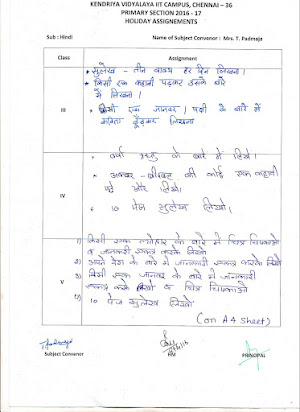 KENDRIYA VIDYALAYA IIT CAMPUS, CHENNAI – 36
PRIMARY SECTION 2016 - 17
HOLIDAY ASSIGNEMENTS
Sub : Hindi Name of Subject Convenor : Mrs. T. Padmaja
Class Assignment
III
* सुलेख - तीन वाक्य हर दिन लिखना।
* किसी एक कहानी पढ़कर उसके बारे
में लिखना।
* किसी एक जानवर / पक्षी के बारे में
कविता ढूँढकर लिखना
IV
* वर्षा ऋतु के बारे में लिखें।
* अकबर - बीरबल की कोई एक कहानी
पढ़ें और लिखें।
* 10 पेज सुलेख लिखो।
V
1) किसी एक त्योहार के बारे में चित्र चिपकाओ
व जानकारी एकत्र करके लिखो
2) अपने देश के बारे में जानकारी एकत्र करके लिखो
3) किसी एक जानवर के बारे में जानकारी
एकत्र करके लिखो व चित्र चिपकाओ
4) 10 पेज सुलेख लिखो
(on A4 Sheet)
Subject Convenor HM PRINCIPAL